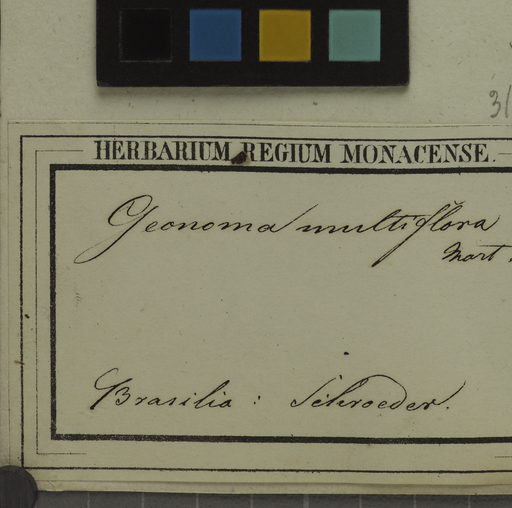 31
HERBARIUM REGIUM MONACENSE.
Geonoma multiflora
Mart.
Brasilia: Schroeder.